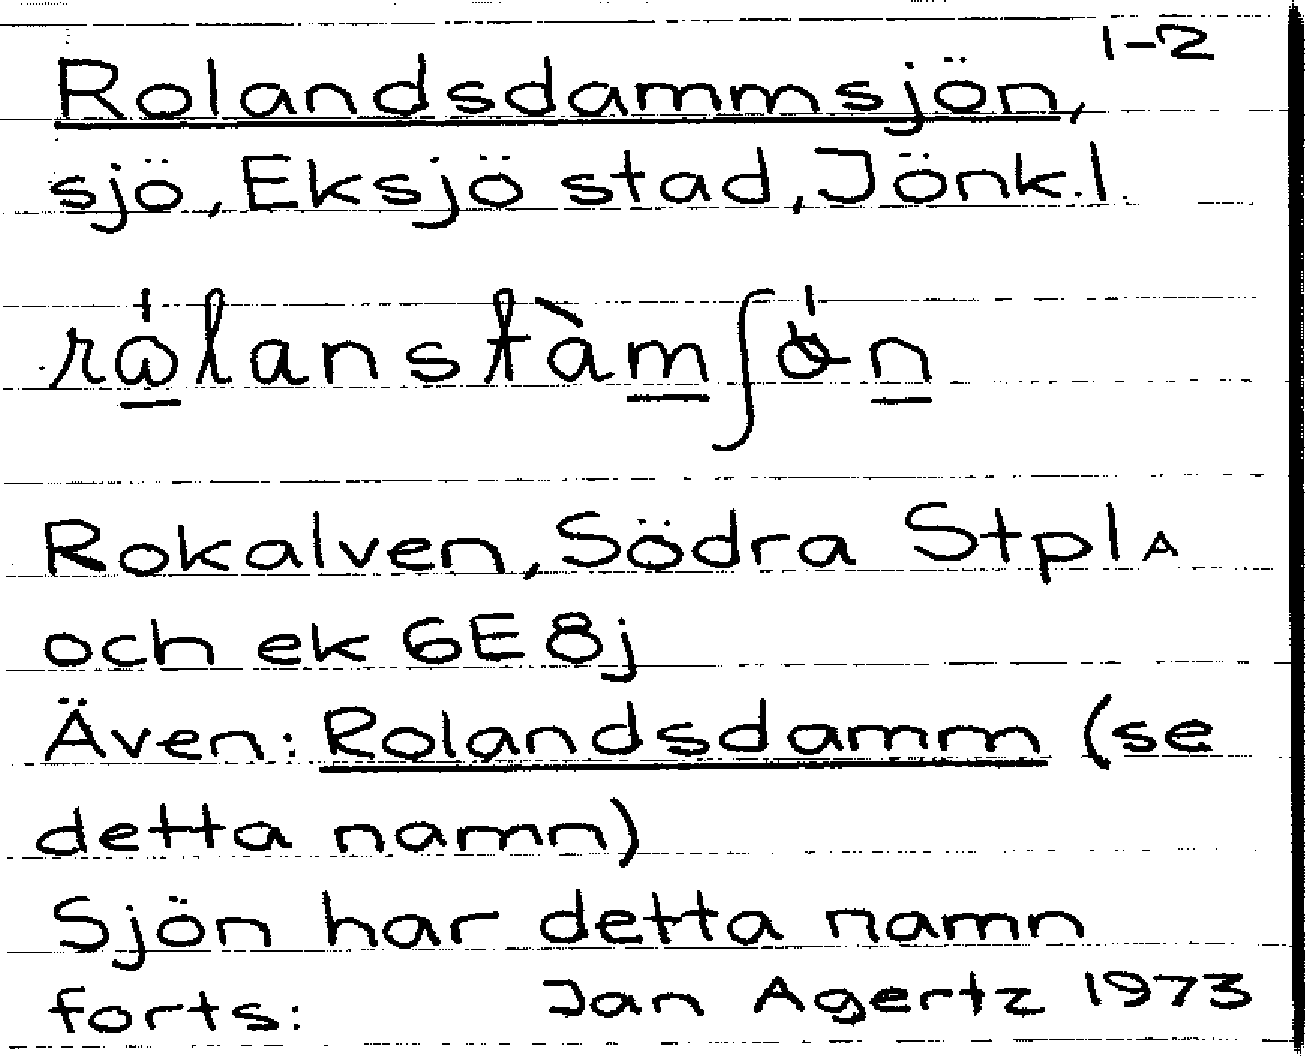 1-2
Rolandsdammsjön,
sjö, Eksjö stad, Jönk.l.
Rokalven, Södra Stpl A
och ek 6E 8j
Även: Rolandsdamm (se
detta namn)
Sjön har detta namn
forts: Jan Agertz 1973